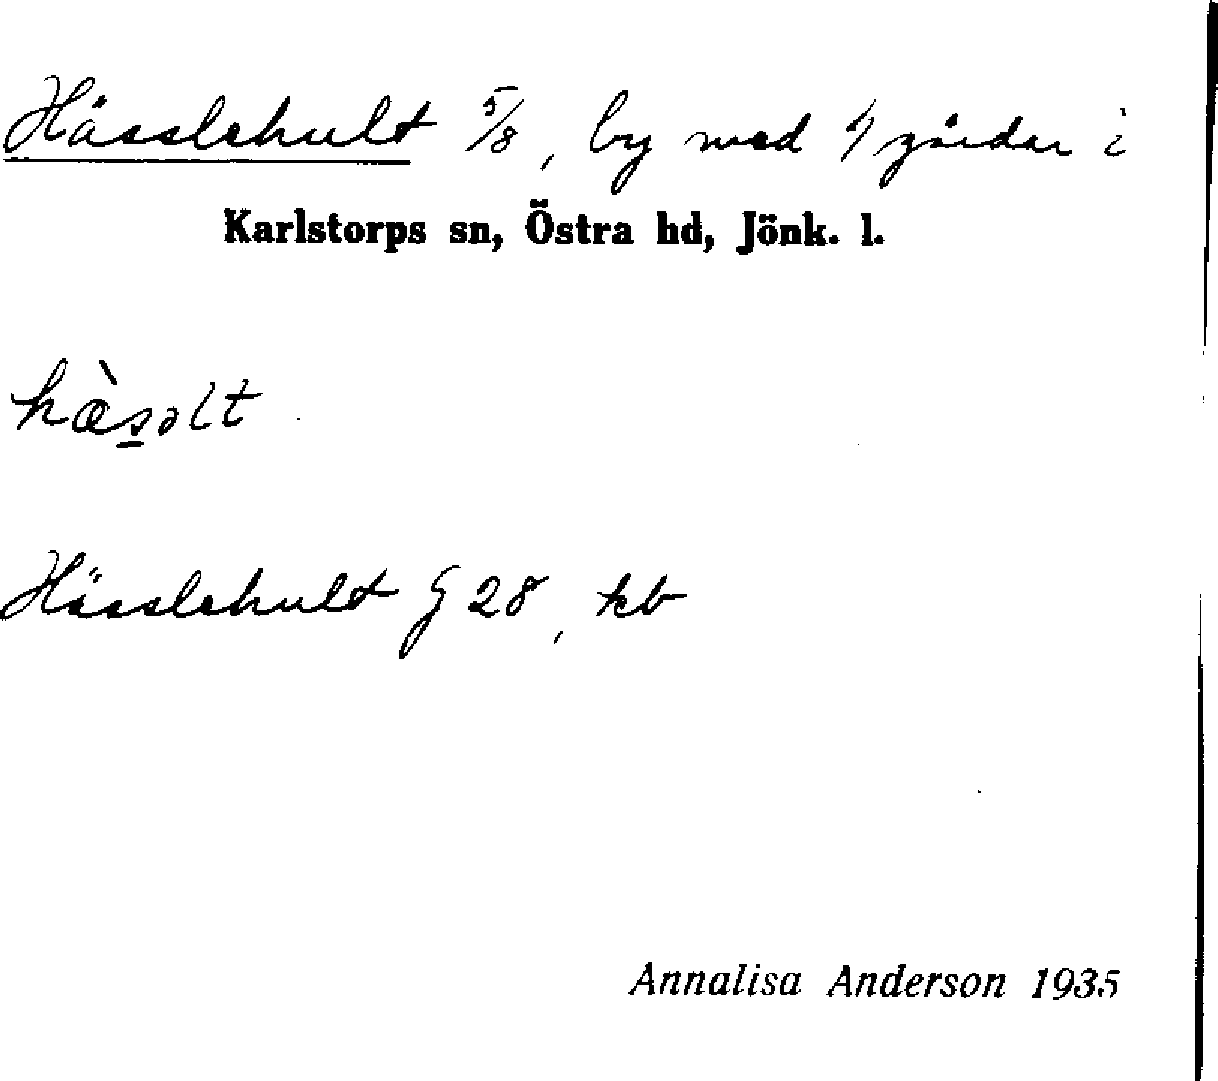 Hässlehult 5/8, by med 4 gårdar i
Karlstorps sn, Östra hd, Jönk. l.
hæ̀s̲əlt
Hässlehult G 28, kb
Annalisa Anderson 1935